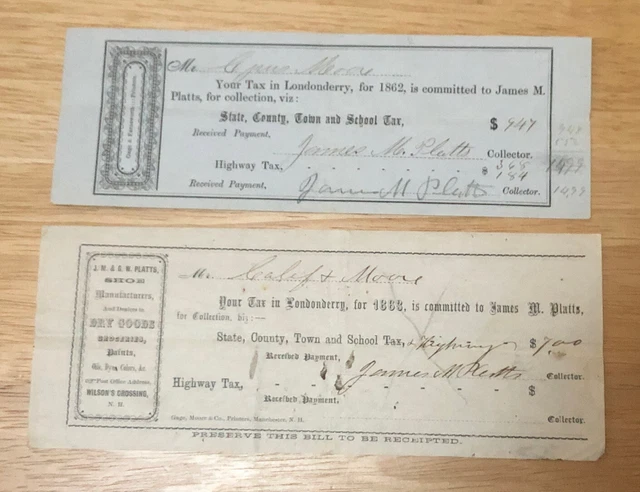 Mr. Cyrus Moore
Your Tax in Londonderry, for 1862, is committed to James M.
Platts, for collection, viz:
State, County, Town and School Tax, $ 947
Received Payment,
James M. Platts Collector.
Highway Tax, $ 368
184
Received Payment, James M Platts Collector.
1499
J. M. & S. W. PLATTS,
SHOE
Manufacturers,
And Dealers in
DRY GOODS
GROCERIES,
Paints,
Oils, Dyes, Colors, &c.
Post Office Address,
WILSON'S CROSSING,
N. H.
Mr. & Moore
Your Tax in Londonderry, for 1863, is committed to James M. Platts,
for Collection, viz:—
State, County, Town and School Tax, & Highway $ 900
Received Payment,
James M Platts Collector.
Highway Tax, - - - - - $
Received Payment.
Collector.
Gage, Moore & Co., Printers, Manchester, N. H.
PRESERVE THIS BILL TO BE RECEIPTED.